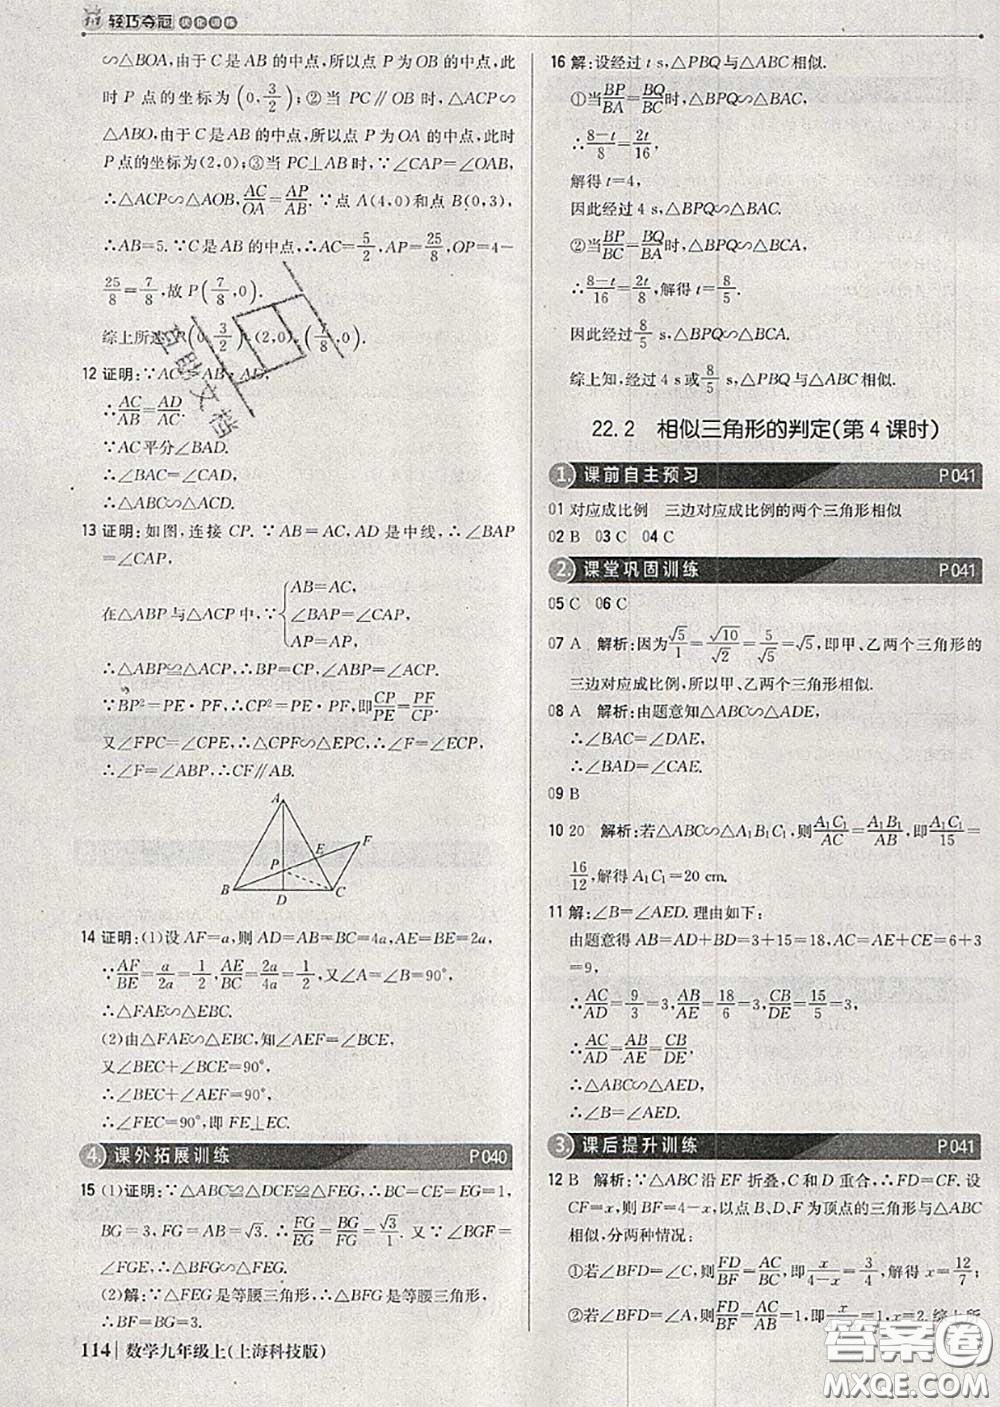 轻巧夺冠 优化训练
∽△BOA,由于 C 是 AB 的中点,所以点 P 为 OB 的中点,此
时 P 点的坐标为(0,3/2);②当 PC∥OB 时,△ACP∽
△ABO,由于 C 是 AB 的中点,所以点 P 为 OA 的中点,此时
P 点的坐标为(2,0);③当 PC⊥AB 时,∵∠CAP=∠OAB,
∴△ACP∽△AOB,AC/OA=AP/AB.∵点 A(4,0)和点 B(0,3),
∴AB=5.∵C 是 AB 的中点,∴AC=5/2,AP=25/8,OP=4-
25/8=7/8,故 P(7/8,0).
综上所述,P(0,3/2),(2,0),(7/8,0).
12 证明:∵AC²=AB·AD,
∴AC/AB=AD/AC.
∵AC平分∠BAD,
∴∠BAC=∠CAD,
∴△ABC∽△ACD.
13 证明:如图,连接 CP.∵AB=AC,AD 是中线,∴∠BAP
=∠CAP,
在△ABP 与△ACP 中,∵{AB=AC,
∠BAP=∠CAP,
AP=AP,
∴△ABP≌△ACP,∴BP=CP,∠ABP=∠ACP.
∵BP²=PE·PF,∴CP²=PE·PF,即CP/PE=PF/CP.
又∠FPC=∠CPE,∴△CPF∽△EPC,∴∠F=∠ECP,
∴∠F=∠ABP,∴CF∥AB.
A
E
F
P
B
D
C
14 证明:(1)设 AF=a,则 AD=AB=BC=4a,AE=BE=2a,
∵AF/BE=a/2a=1/2,AE/BC=2a/4a=1/2,又∠A=∠B=90°,
∴△FAE∽△EBC.
(2)由△FAE∽△EBC,知∠AEF=∠BCE,
又∠BEC+∠BCE=90°,
∴∠BEC+∠AEF=90°,
∴∠FEC=90°,即 FE⊥EC.
4. 课外拓展训练 P040
15 (1)证明:∵△ABC≌△DCE≌△FEG,∴BC=CE=EG=1,
BG=3,FG=AB=√3.∴FG/EG=BG/FG=√3/1.又∠BGF=
∠FGE,∴△BFG∽△FEG.
(2)解:∵△FEG 是等腰三角形,∴△BFG 是等腰三角形,
∴BF=BG=3.
114 数学九年级上(上海科技版)
16 解:设经过 t s,△PBQ 与△ABC 相似.
①当BP/BA=BQ/BC时,△BPQ∽△BAC,
∴(8-t)/8=2t/16,
解得 t=4,
因此经过 4 s,△BPQ∽△BAC.
②当BP/BC=BQ/BA时,△BPQ∽△BCA,
∴(8-t)/16=2t/8,解得 t=8/5.
因此经过8/5 s,△BPQ∽△BCA.
综上知,经过 4 s 或8/5 s,△PBQ 与△ABC 相似.
22.2 相似三角形的判定(第 4 课时)
1. 课前自主预习 P041
01 对应成比例 三边对应成比例的两个三角形相似
02 B 03 C 04 C
2. 课堂巩固训练 P041
05 C 06 C
07 A 解析:因为√5/1=√10/√2=5/√5=√5,即甲、乙两个三角形的
三边对应成比例,所以甲、乙两个三角形相似.
08 A 解析:由题意知△ABC∽△ADE,
∴∠BAC=∠DAE,
∴∠BAD=∠CAE.
09 B
10 20 解析:若△ABC∽△A₁B₁C₁,则A₁C₁/AC=A₁B₁/AB,即A₁C₁/15=
16/12,解得 A₁C₁=20 cm.
11 解:∠B=∠AED.理由如下:
由题意得 AB=AD+BD=3+15=18,AC=AE+CE=6+3
=9,
∴AC/AD=9/3=3,AB/AE=18/6=3,CB/DE=15/5=3,
∴AC/AD=AB/AE=CB/DE,
∴△ABC∽△AED,
∴∠B=∠AED.
3. 课后提升训练 P041
12 B 解析:∵△ABC 沿 EF 折叠,C 和 D 重合,∴FD=CF.设
CF=x,则 BF=4-x,以点 B、D、F 为顶点的三角形与△ABC
相似,分两种情况:
①若∠BFD=∠C,则FD/BF=AC/BC,即x/(4-x)=3/4,解得 x=12/7;
②若∠BFD=∠A,则FD/BF=AC/AB=1,即x/(4-x)=1,x=2.综上所
答案圈
MXQE.COM